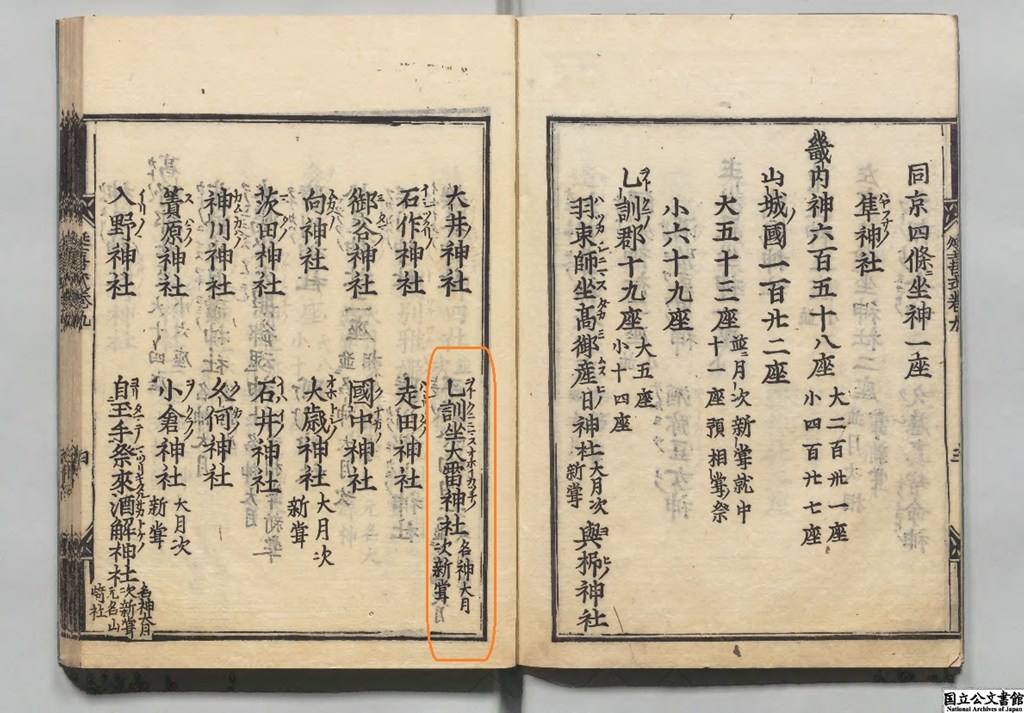 同京四條坐神一座
隼神社
畿内神六百五十八座 大二百卅一座 小四百廿七座
山城國一百廿二座
大五十三座 並月次新甞就中 十一座預相甞祭
小六十九座
乙訓郡十九座 大五座 小十四座
羽束師坐高御産日神社 大月次 新甞 與杼神社
大井神社 乙訓坐大雷神社 名神大月 次新甞
石作神社 走田神社
御谷神社 國中神社
向神社 大歳神社 大月次 新甞
茨田神社 石井神社
神川神社 久何神社
簀原神社 小倉神社 大月次 新甞
入野神社 自玉手祭來酒解神社 名神大月 次新甞 元名山 﨑社
国立公文書館
National Archives of Japan